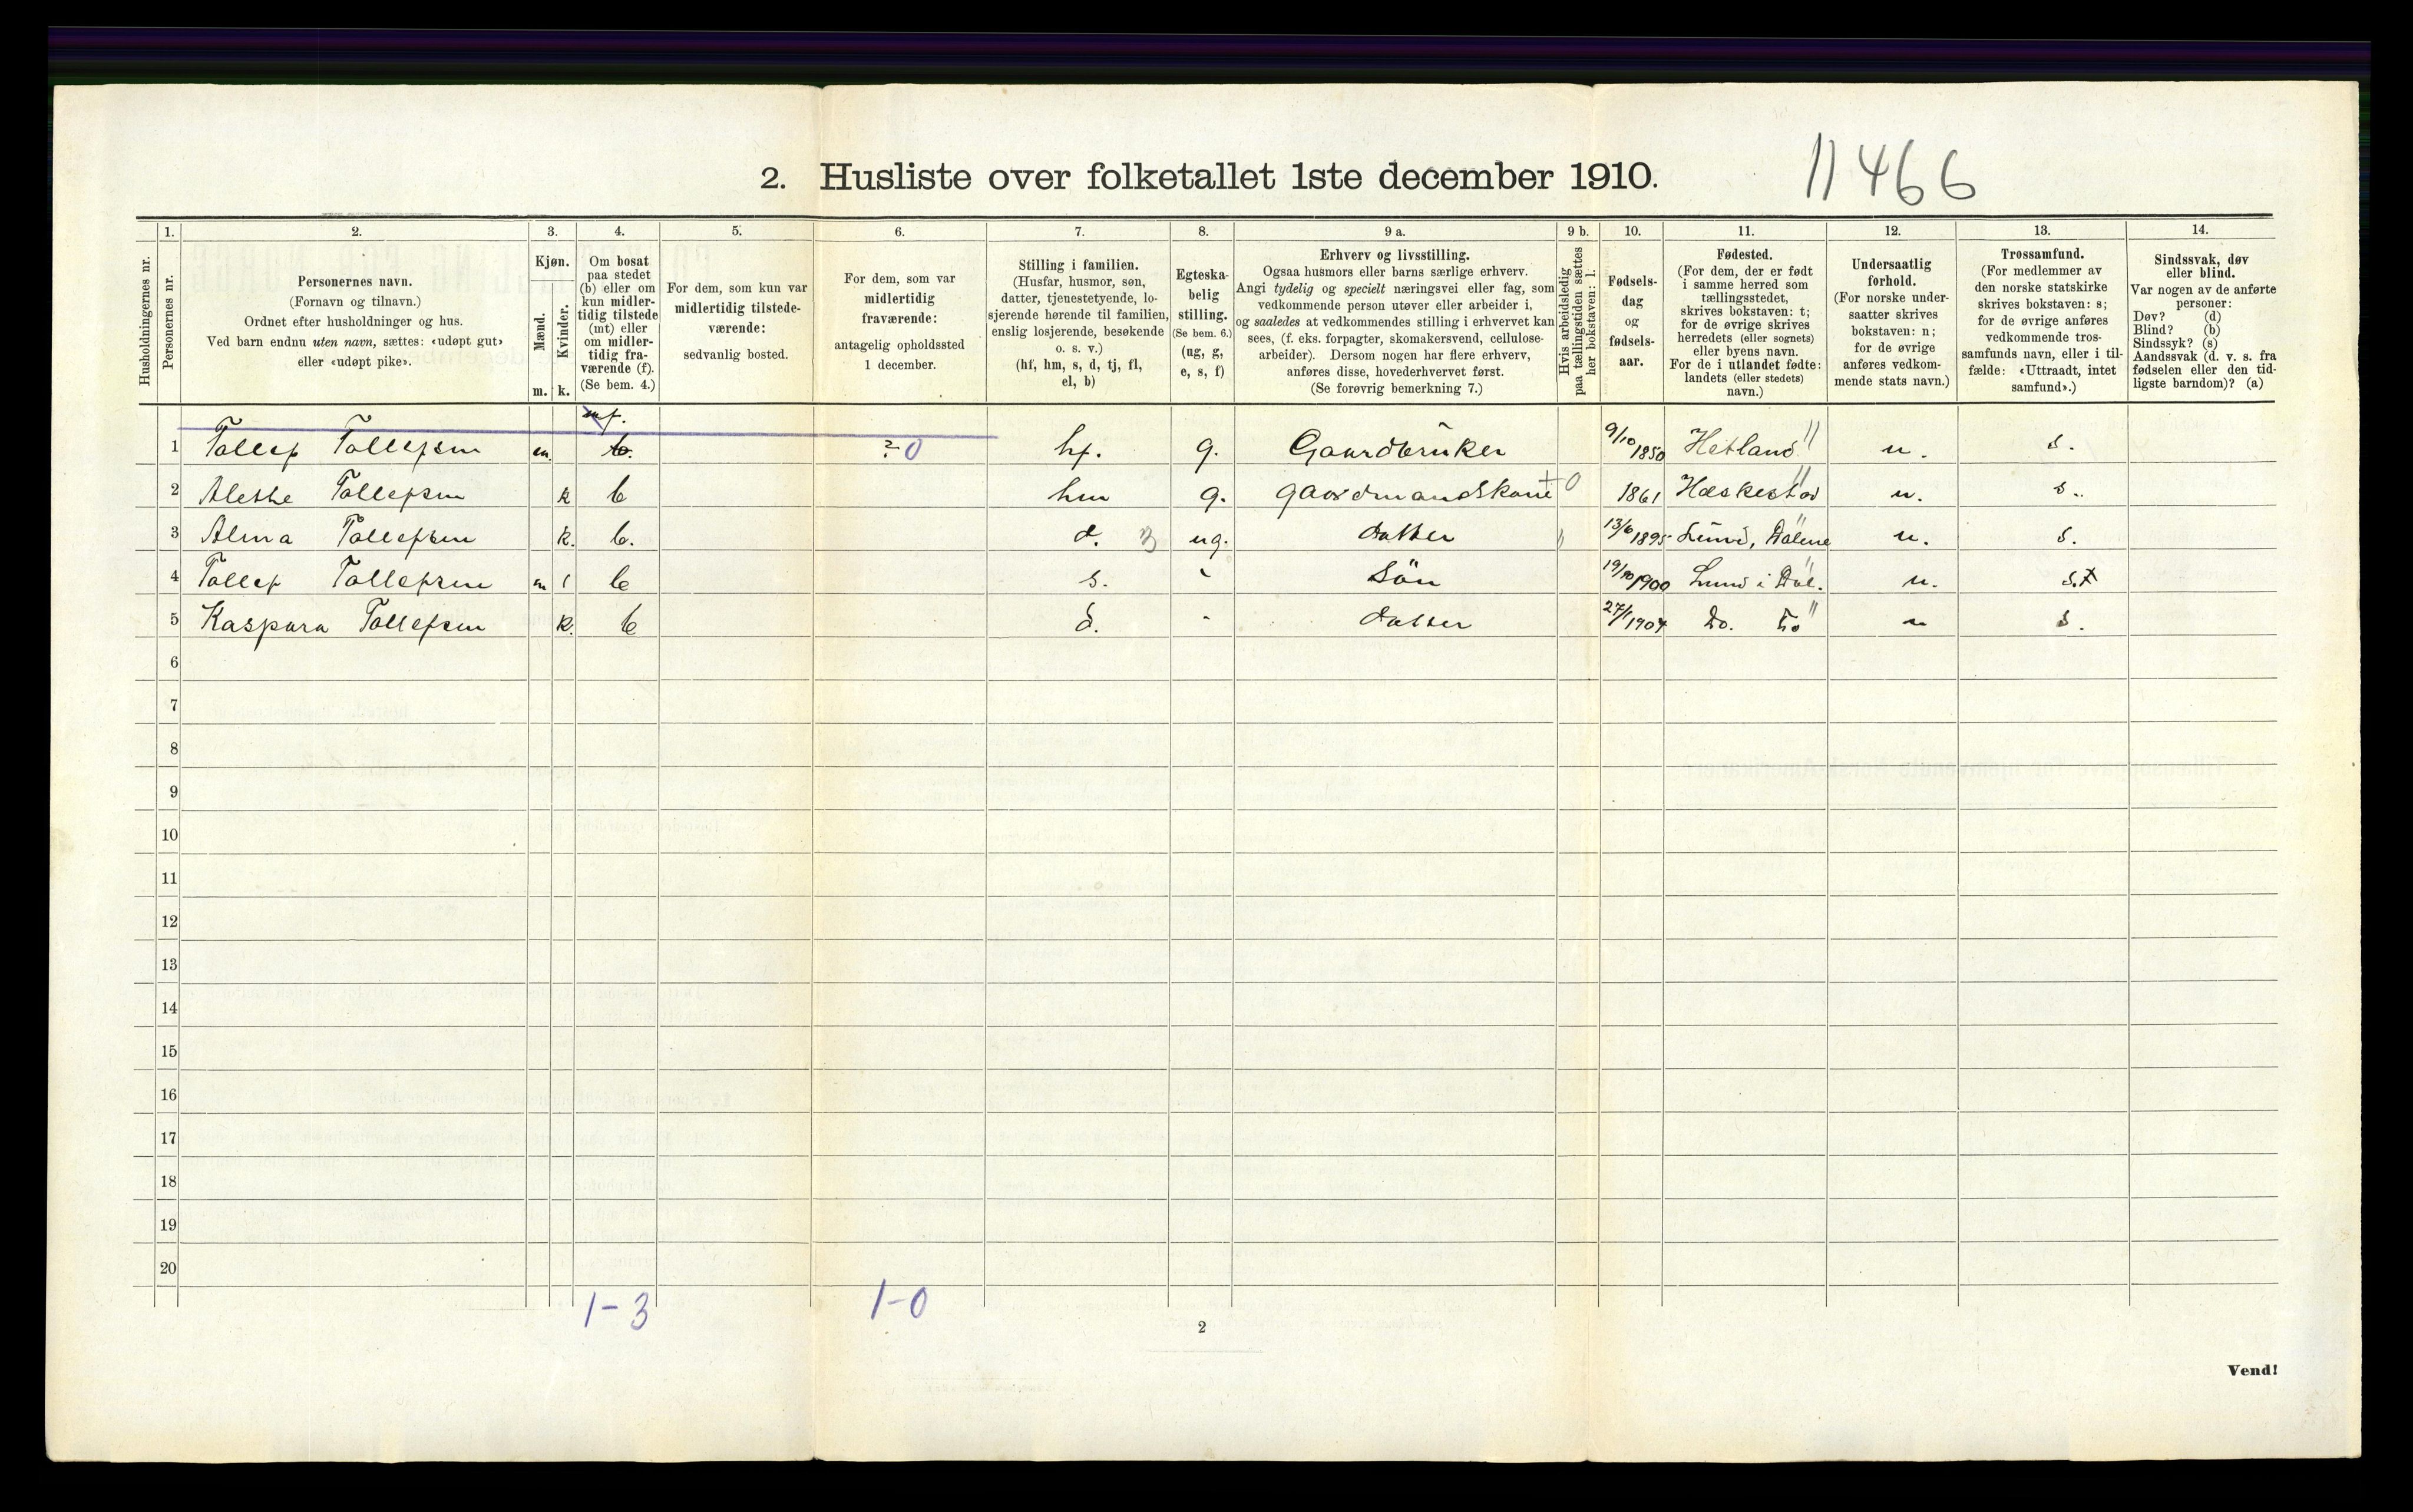 2. Husliste over folketallet 1ste december 1910.
11466
Husholdningernes nr.
1.
Personernes nr.
2.
Personernes navn.
(Fornavn og tilnavn.)
Ordnet efter husholdninger og hus.
Ved barn endnu uten navn, sættes: «udøpt gut»
eller «udøpt pike».
3.
Kjøn.
Mænd.
Kvinder.
m. k.
4.
Om bosat
paa stedet
(b) eller om
kun midler-
tidig tilstede
(mt) eller
om midler-
tidig fra-
værende (f).
(Se bem. 4.)
5.
For dem, som kun var
midlertidig tilstede-
værende:
sedvanlig bosted.
6.
For dem, som var
midlertidig
fraværende:
antagelig opholdssted
1 december.
7.
Stilling i familien.
(Husfar, husmor, søn,
datter, tjenestetyende, lo-
sjerende hørende til familien,
enslig losjerende, besøkende
o. s. v.)
(hf, hm, s, d, tj, fl,
el, b)
8.
Egteska-
belig
stilling.
(Se bem. 6.)
(ug, g,
e, s, f)
9 a.
Erhverv og livsstilling.
Ogsaa husmors eller barns særlige erhverv.
Angi tydelig og specielt næringsvei eller fag, som
vedkommende person utøver eller arbeider i,
og saaledes at vedkommendes stilling i erhvervet kan
sees, (f. eks. forpagter, skomakersvend, cellulose-
arbeider). Dersom nogen har flere erhverv,
anføres disse, hovederhvervet først.
(Se forøvrig bemerkning 7.)
9 b.
Hvis arbeidsledig
paa tællingstiden sættes
her bokstaven: l.
10.
Fødsels-
dag
og
fødsels-
aar.
11.
Fødested.
(For dem, der er født
i samme herred som
tællingsstedet,
skrives bokstaven: t;
for de øvrige skrives
herredets (eller sognets)
eller byens navn.
For de i utlandet fødte:
landets (eller stedets)
navn.)
12.
Undersaatlig
forhold.
(For norske under-
saatter skrives
bokstaven: n;
for de øvrige
anføres vedkom-
mende stats navn.)
13.
Trossamfund.
(For medlemmer av
den norske statskirke
skrives bokstaven: s;
for de øvrige anføres
vedkommende tros-
samfunds navn, eller i til-
fælde: «Uttraadt, intet
samfund».)
14.
Sindssvak, døv
eller blind.
Var nogen av de anførte
personer:
Døv? (d)
Blind? (b)
Sindssyk? (s)
Aandssvak (d. v. s. fra
fødselen eller den tid-
ligste barndom)? (a)
1 Tollef Tollefsen m. b. ? 0 hf. g. Gaardbruker 9/10 1850 Hetland n. s.
2 Alethe Tollefsen k b hm g. gaardmandskone + 0 1861 Heskestad n. s.
3 Alma Tollefsen k. b. d. ug. datter 13/6 1895 Lund, Dalene n. s.
4 Tollef Tollefsen m 1 b s. Sön 19/10 1900 Lund i Dal. n. s.
5 Kaspara Tollefsen k. b d. datter 27/1 1904 Do. Do n s.
6
7
8
9
10
11
12
13
14
15
16
17
18
19
20
1-3 1-0
2
Vend!